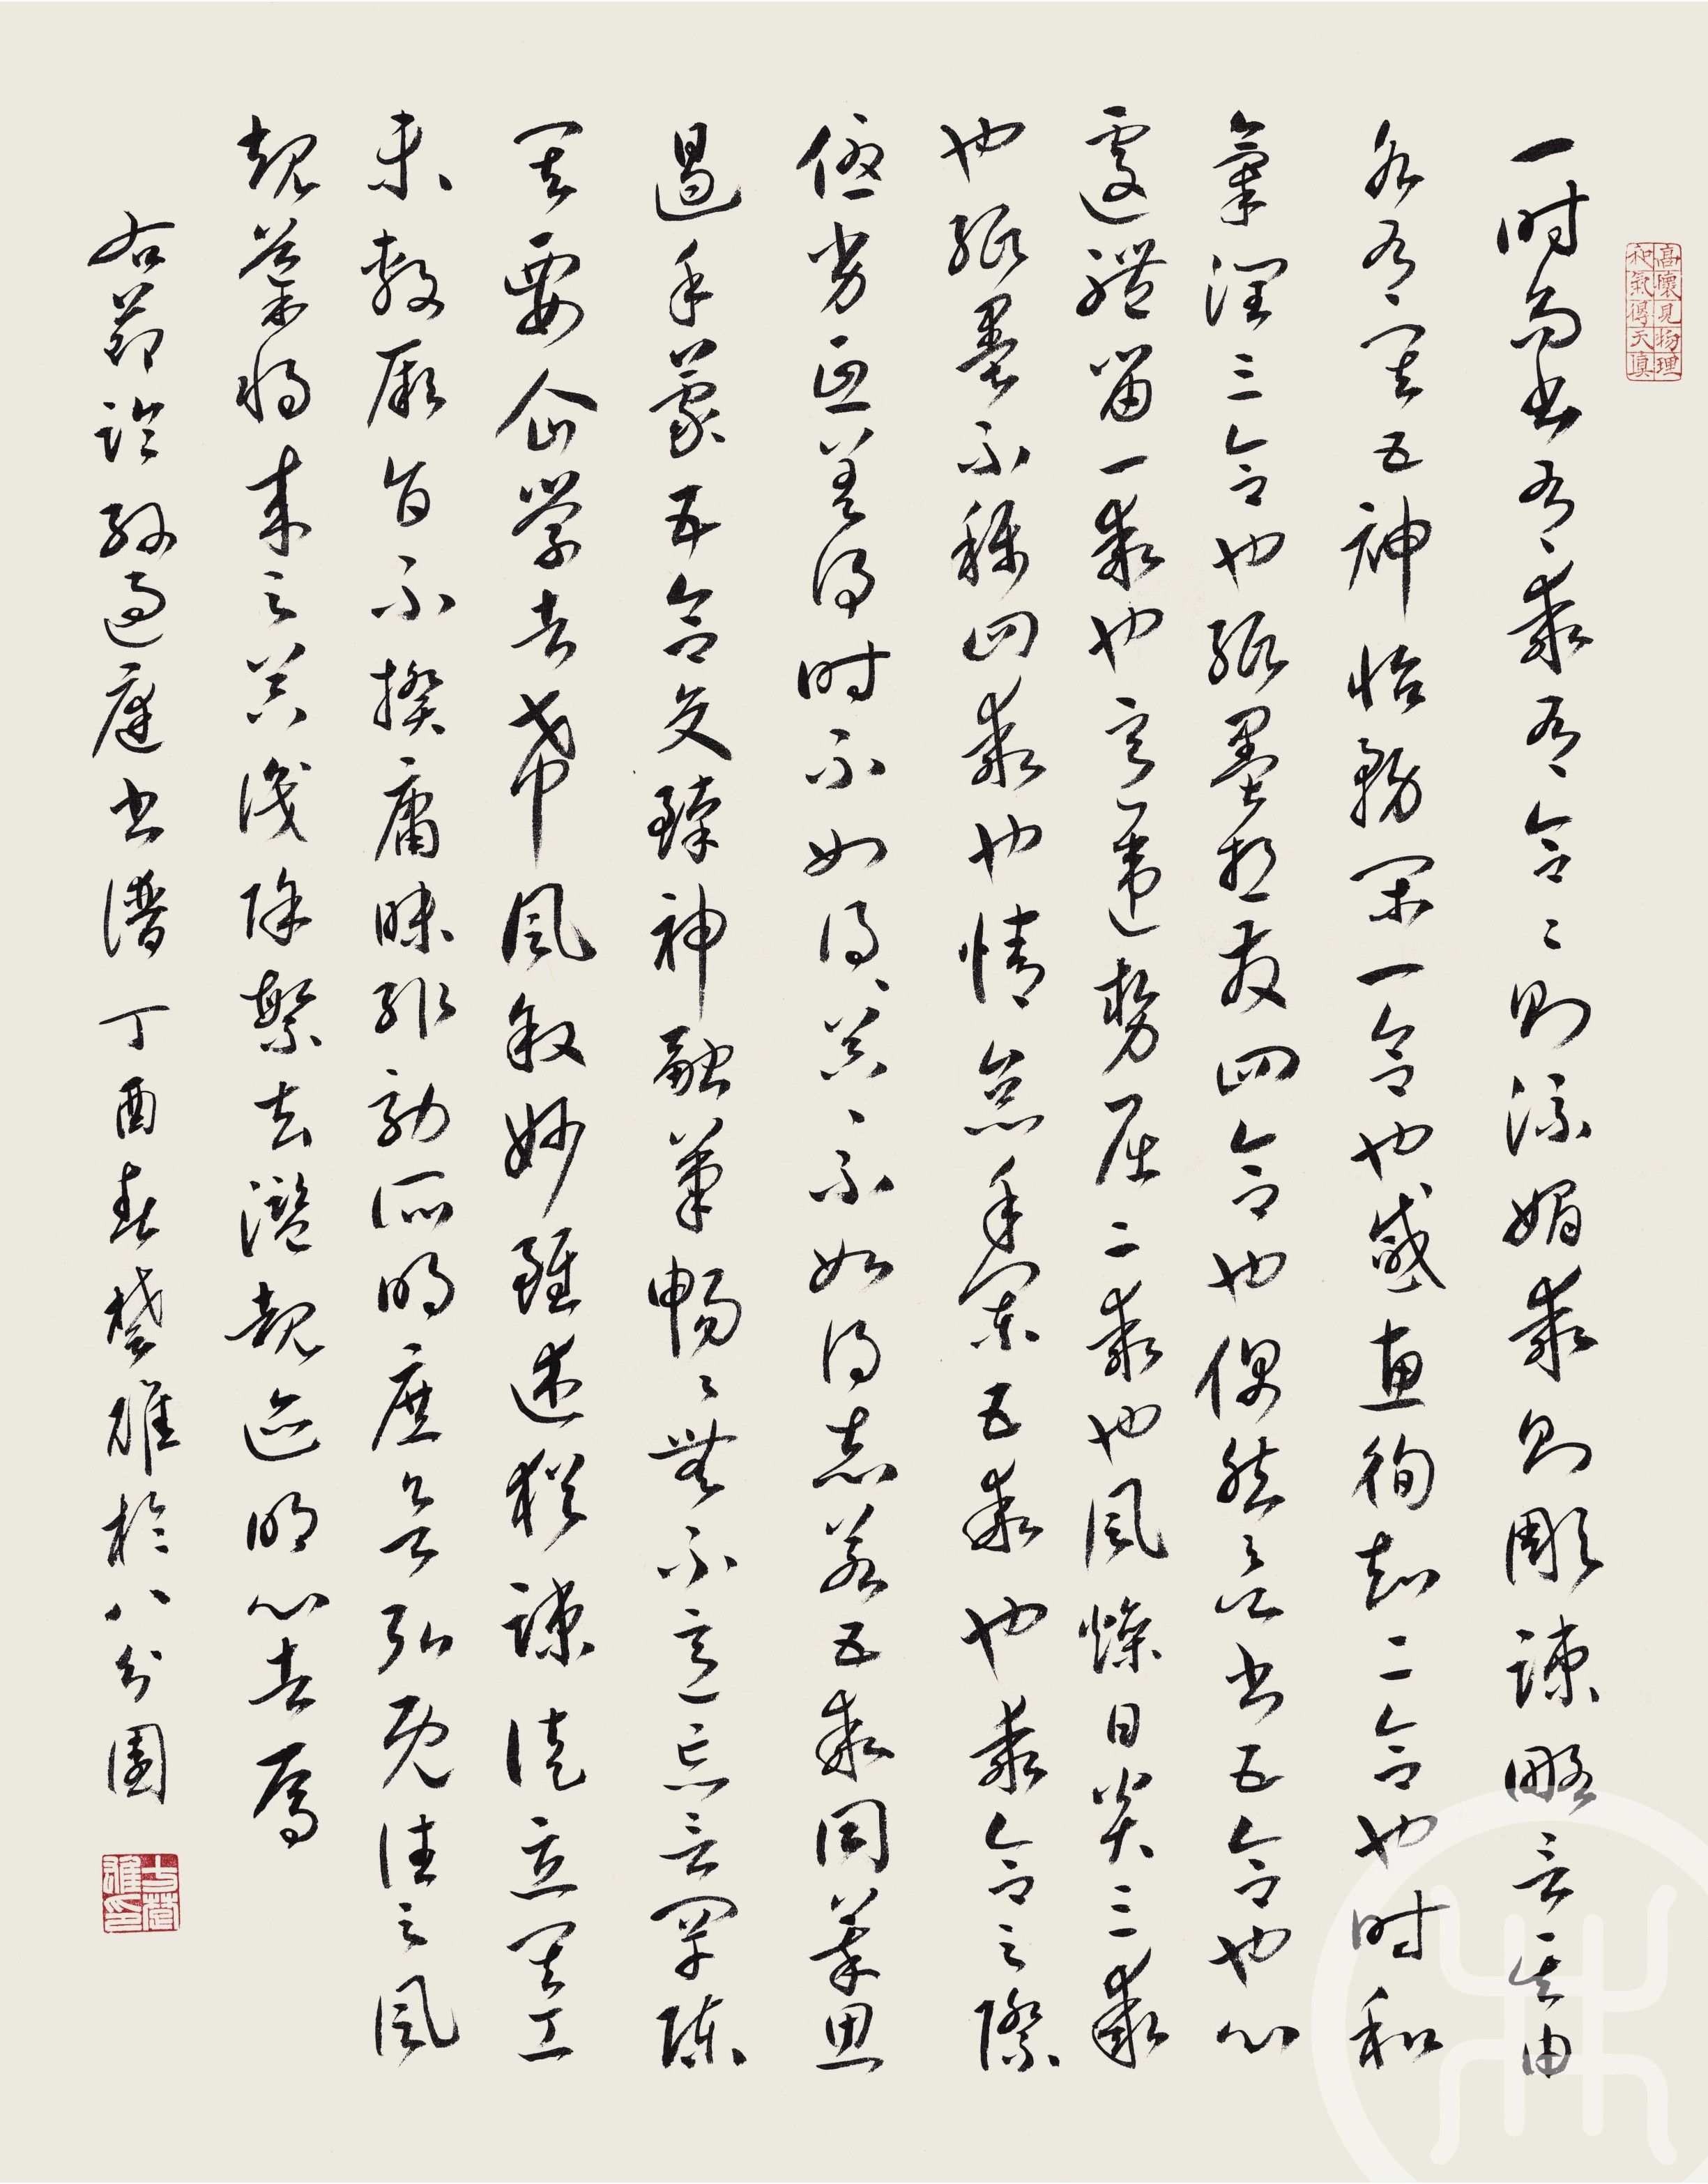 高懷見物理
和氣得天真
一時而書有乖有合々則流媚乖則彫疎略言其由
各有其五神怡務閑一合也感惠徇知二合也時和
氣潤三合也紙墨相發四合也偶然欲書五合也心
遽體留一乖也意違勢屈二乖也風燥日炎三乖
也紙墨不稱四乖也情怠手闌五乖也乖合之際
優劣互差得時不如得器々不如得志若五乖同萃思
遏手蒙五合交臻神融筆暢々無不意忘言罕陳
其要企學者希風敘妙雖述猶疎徒立其工
未敷厥旨不揆庸昧輒效所明庶欲弘既往之風
規導將來之器識除繁去濫覩迹明心者焉
右節論孫過庭書譜丁酉春楚雄於八分園
方楚雄印